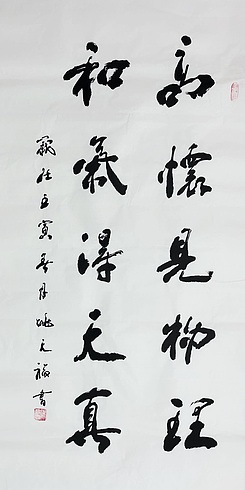 高懷見物理
和氣得天真
歲在壬寅月姚福書